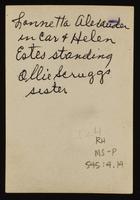 Lonnetta Alexander
in car & Helen
Estes standing
Ollie Scruggs
sister
RH
MS-P
545:4.14